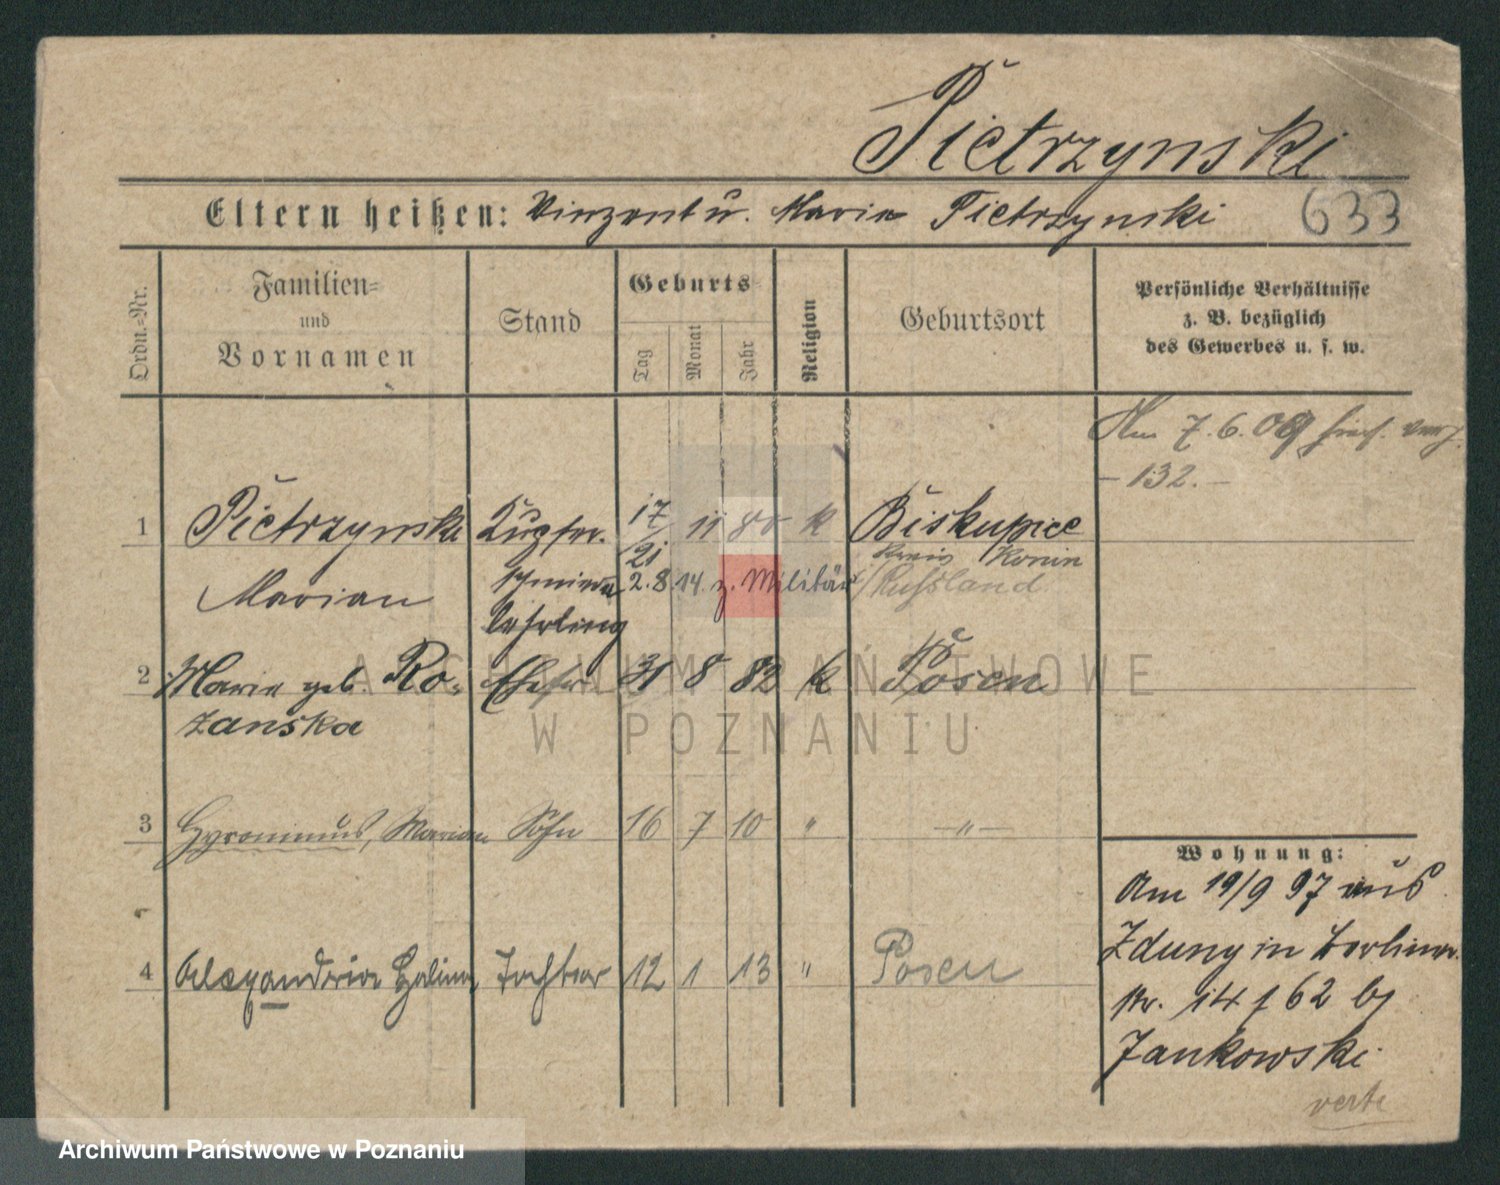 Pietrzynski
Eltern heißen: Vinzent u. Maria Pietrzynski 633
Ordn.=Nr.
Familien=
und
Vornamen
Stand
Geburts
Tag
Monat
Jahr
Religion
Geburtsort
Persönliche Verhältnisse
z. B. bezüglich
des Gewerbes u. s. w.
Am 7. 6. 09
- 132. -
1 Pietrzynski Kupfer- 17/21 11 80 k Biskupice
Kreis Konin
Marian schmiede 2.8.14. z. Militär Russland
lehrling
2 Maria geb. Ro- Ehefr. 31 8 82 k Posen
zanska
3 Hyronimus, Marian Sohn 16 7 10 " -"-
4 Alexandria Halina Tochter 12 1 13 " Posen
Wohnung:
Am 19/9 97 aus
Zduny in Berliner
str. 14 f 62 bj
Jankowski
verte
ARCHIWUM PAŃSTWOWE
W POZNANIU
Archiwum Państwowe w Poznaniu